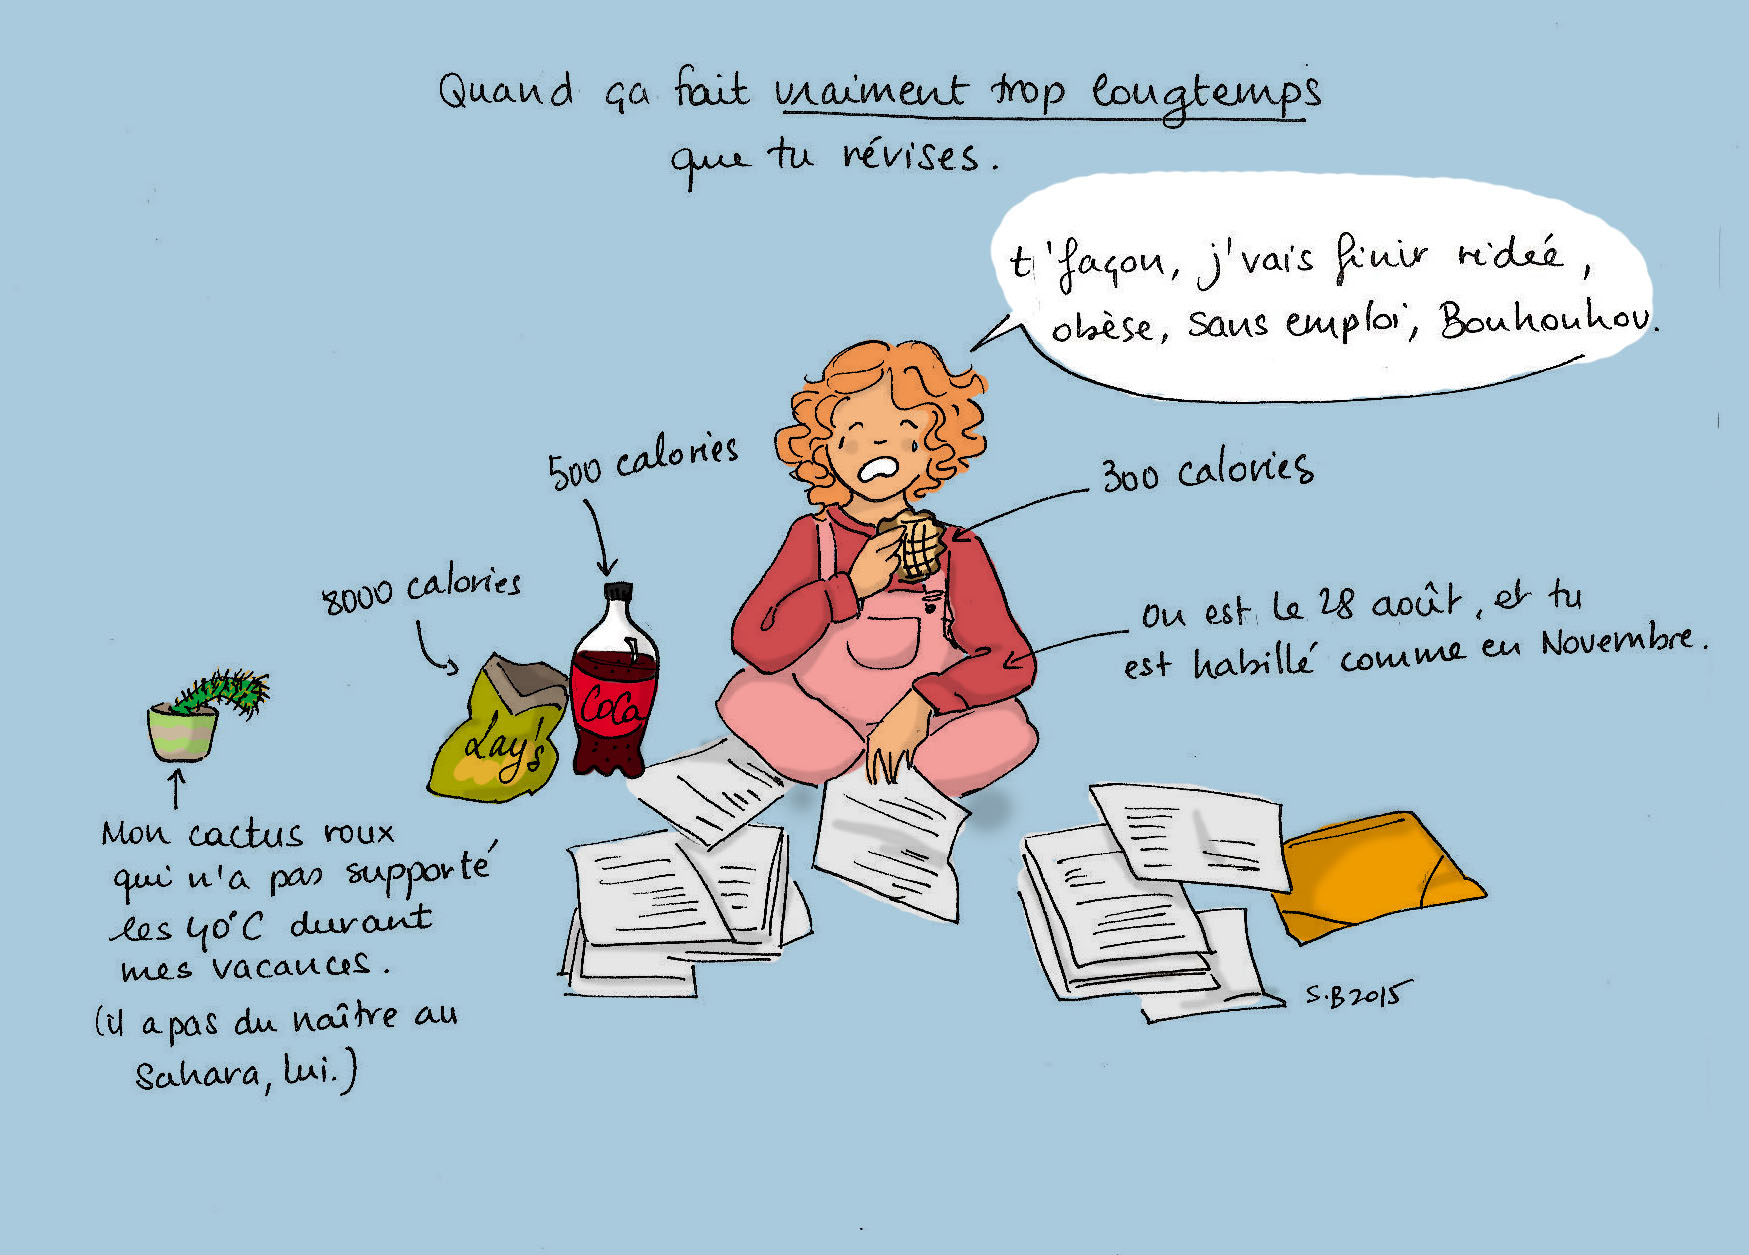 Quand ça fait vraiment trop longtemps
que tu révises.
t'façon, j'vais finir ridée,
obèse, sans emploi, Bouhouhou.
500 calories
300 calories
8000 calories
on est le 28 août, et tu
est habillé comme en Novembre.
Coca
Lay's
Mon cactus roux
qui n'a pas supporté
les 40°C durant
mes vacances.
(il a pas du naître au
Sahara, lui.)
S.B 2015